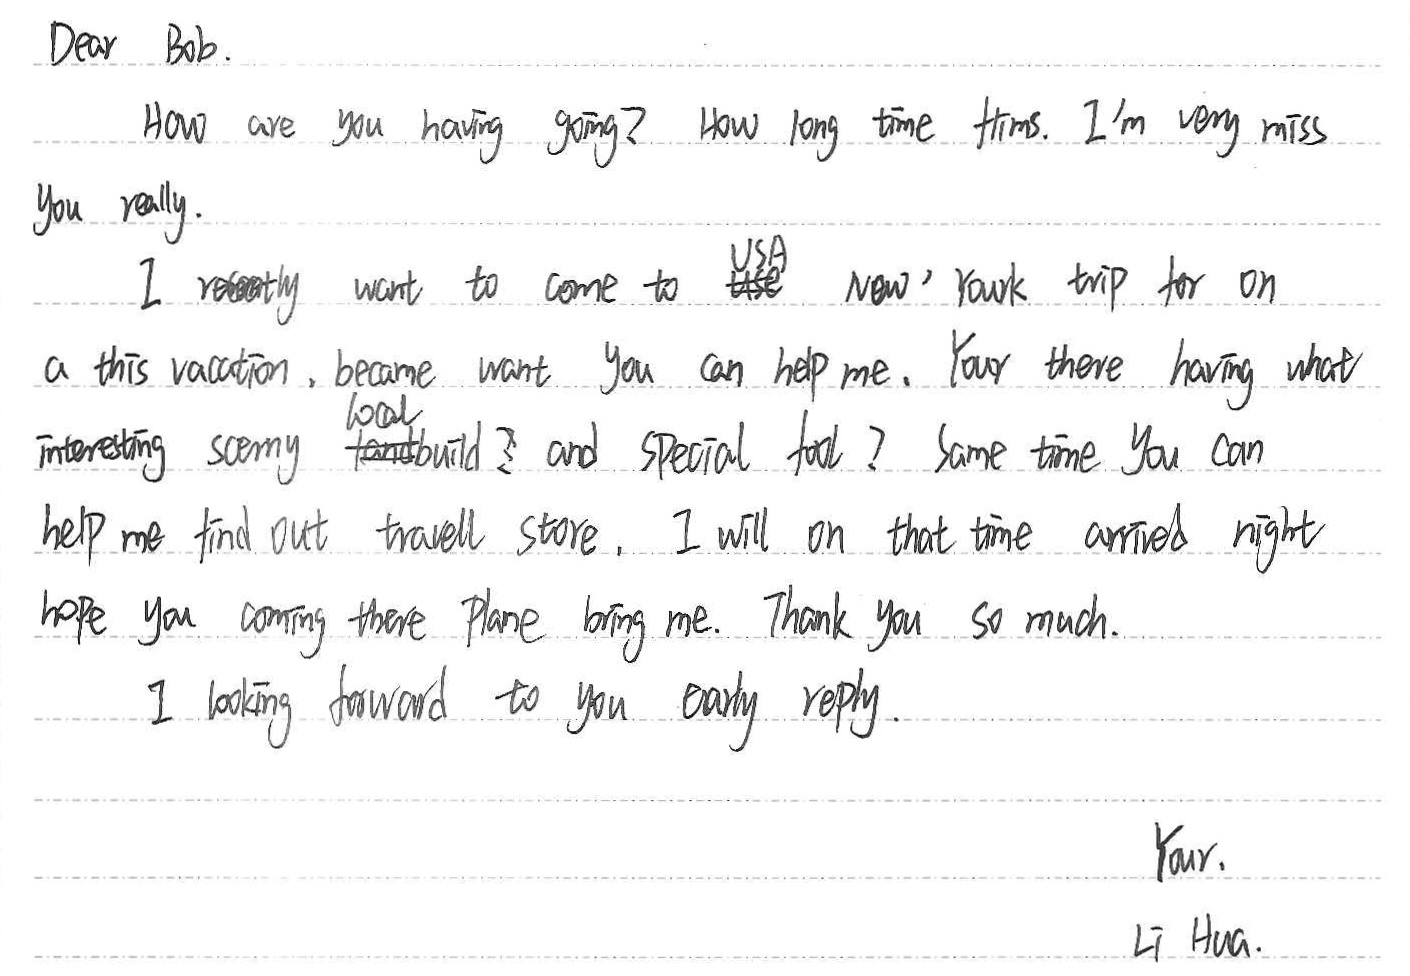 Dear Bob.
How are you having going? How long time tims. I'm very miss
you really.
I recently want to come to USA New' Yourk trip for on
a this vacation, became want you can help me. Your there having what
interesting scemy local build? and special fool? Same time you can
help me find out travell store. I will on that time arrived night
hope you coming there plane bring me. Thank you so much.
I looking forward to you early reply.
Your.
Li Hua.